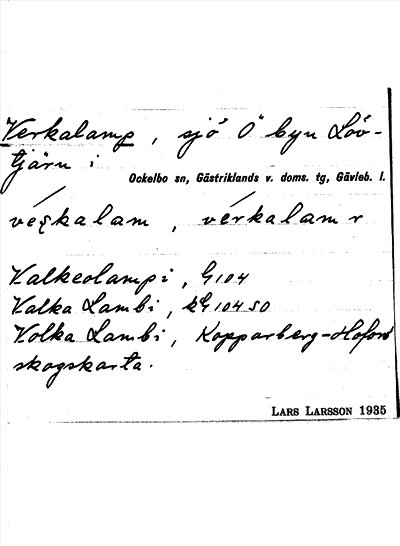 Verkalamp, sjö Ö byn Löv-
tjärn i
Ockelbo sn, Gästriklands v. doms. tg, Gävleb. l.
vérkalam, vérkalam r
Valkeolampi, G104
Valka Lambi, kG 104 SO
Volka Lambi, Kopparberg-Hofors
skogskarta.
LARS LARSSON 1935